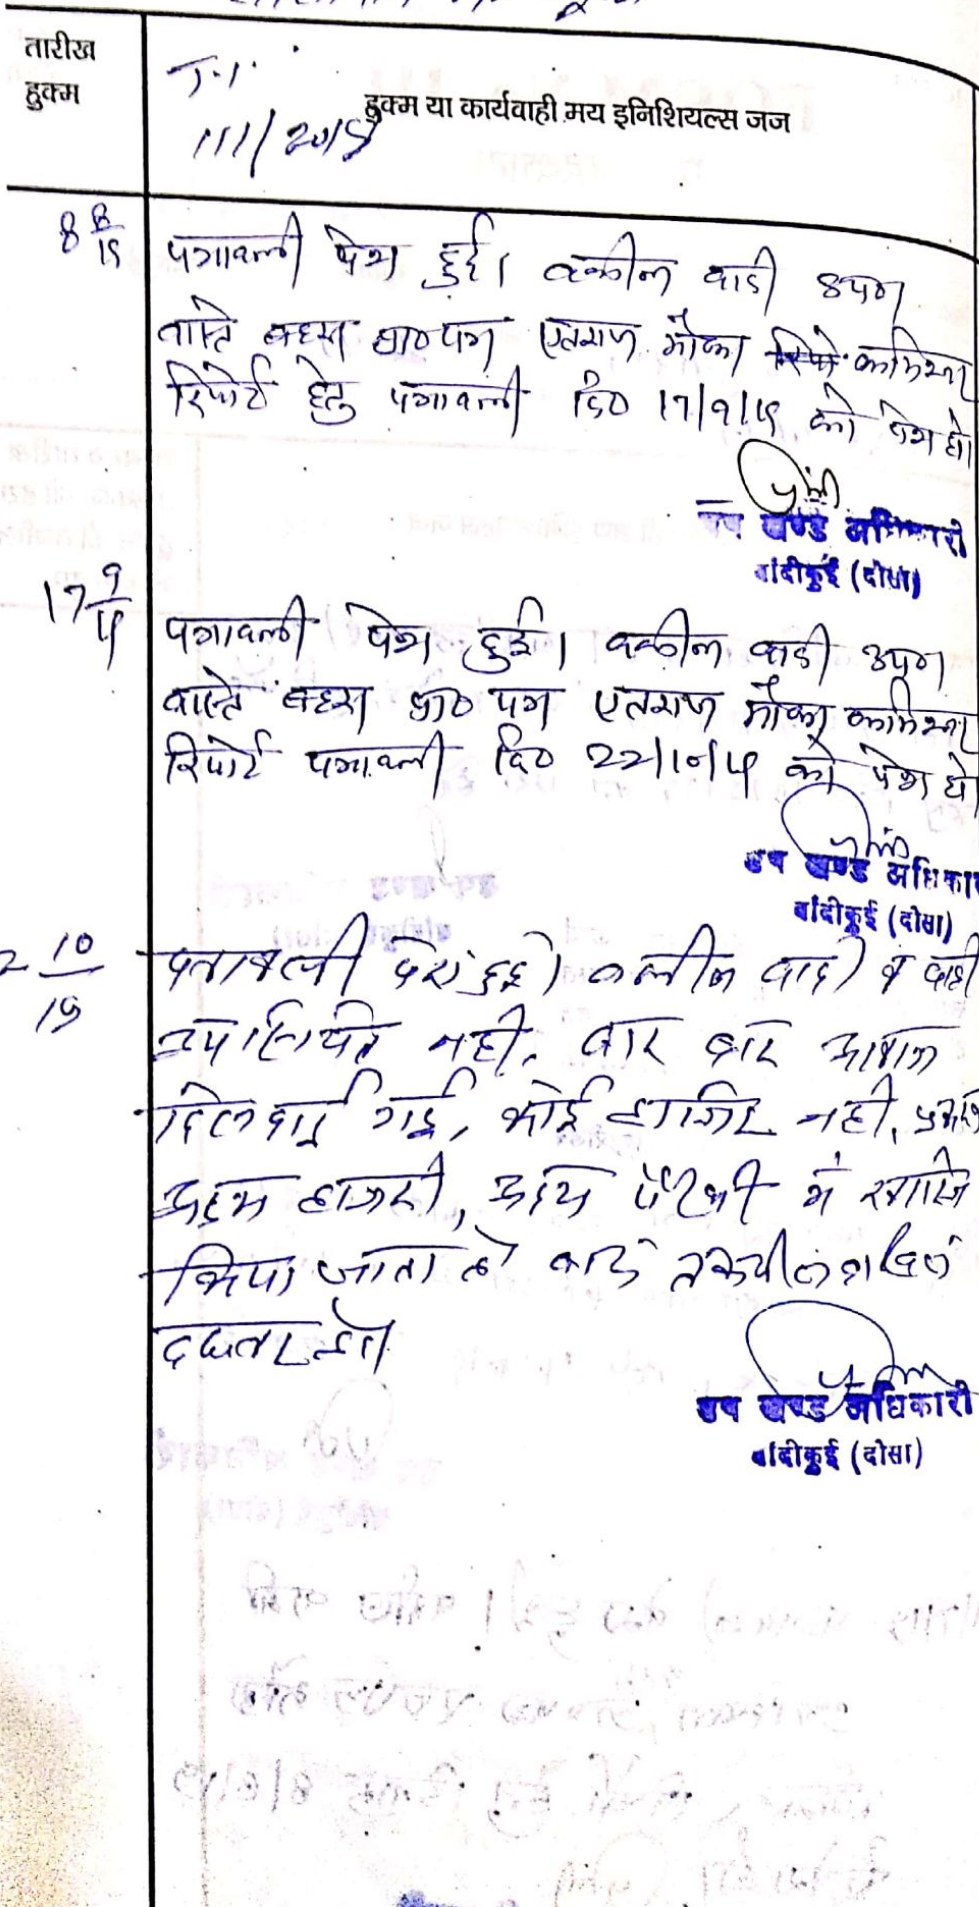 तारीख
हुक्म
हुक्म या कार्यवाही मय इनिशियल्स जज
111/2015
8 8/15
पत्रावली पेश हुई। वकील वादी उप०
वास्ते बहस प्रा० पत्र एतराज मौका कमिश्नर
रिपोर्ट हेतु पत्रावली दि० 17/9/15 को पेश हो
उप खण्ड अधिकारी
बांदीकुई (दौसा)
17 9/15
पत्रावली पेश हुई। वकील वादी उप०
वास्ते बहस प्रा० पत्र एतराज मौका कमिश्नर
रिपोर्ट पत्रावली दि० 22/10/15 को पेश हो
उप खण्ड अधिका
बांदीकुई (दौसा)
2 10/15
पत्रावली पेश हुई। वकील वादी व वादी
उपस्थित नही, बार बार आवाज
दिलवाई गई, कोई हाजिर नही,
अदम हाजरी, अदम पैरवी में खारिज
किया जाता है बाद तकमील दाखिल
दफ्तर हो।
उप खण्ड अधिकारी
बांदीकुई (दौसा)